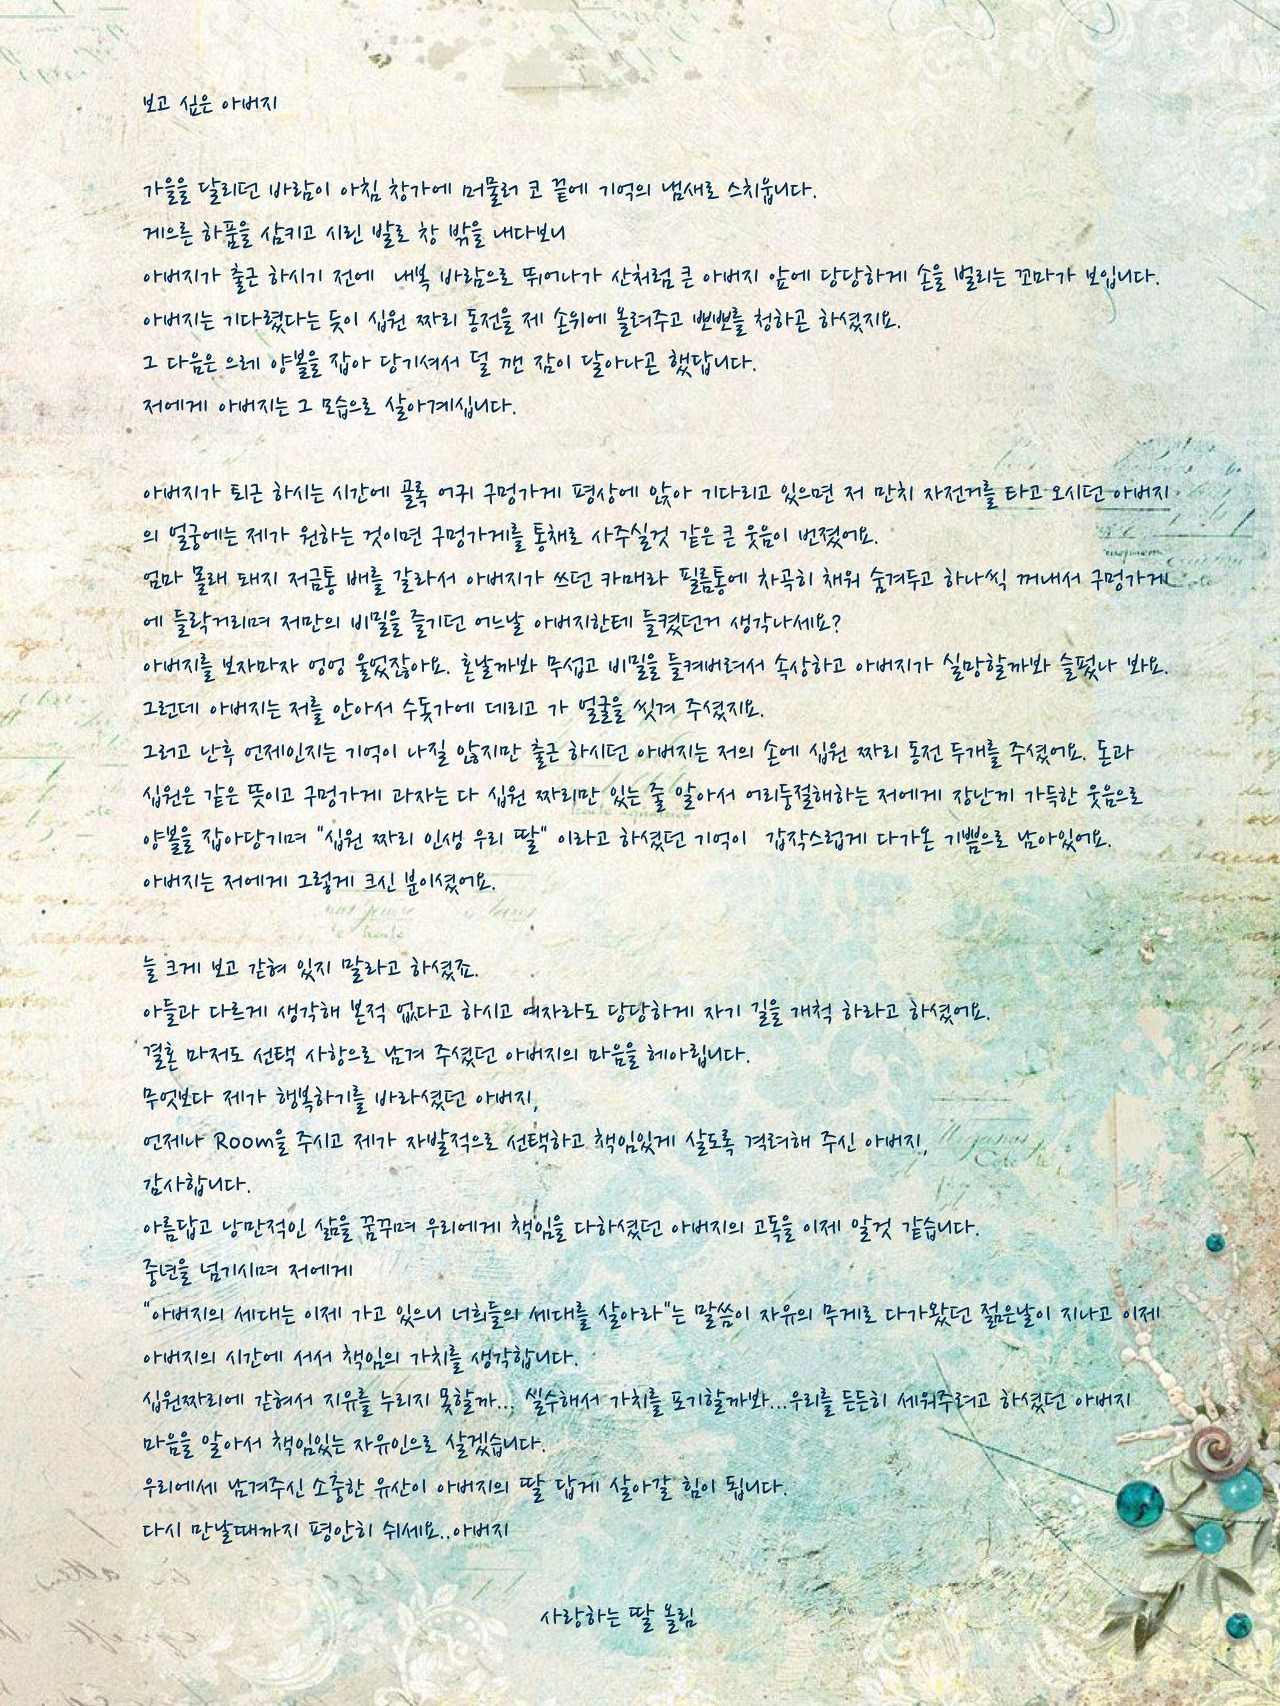 보고 싶은 아버지
가을을 달리던 바람이 아침 창가에 머물러 코 끝에 기억의 냄새로 스치웁니다.
게으른 하품을 삼키고 시린 발로 창 밖을 내다보니
아버지가 출근 하시기 전에 내복 바람으로 뛰어나가 산처럼 큰 아버지 앞에 당당하게 손을 벌리는 꼬마가 보입니다.
아버지는 기다렸다는 듯이 십원 짜리 동전을 제 손위에 올려주고 뽀뽀를 청하곤 하셨지요.
그 다음은 으레 양볼을 잡아 당기셔서 덜 깬 잠이 달아나곤 했답니다.
저에게 아버지는 그 모습으로 살아계십니다.
아버지가 퇴근 하시는 시간에 골목 어귀 구멍가게 평상에 앉아 기다리고 있으면 저 만치 자전거를 타고 오시던 아버지
의 얼굴에는 제가 원하는 것이면 구멍가게를 통채로 사주실것 같은 큰 웃음이 번졌어요.
엄마 몰래 돼지 저금통 배를 갈라서 아버지가 쓰던 카매라 필름통에 차곡히 채워 숨겨두고 하나씩 꺼내서 구멍가게
에 들락거리며 저만의 비밀을 즐기던 어느날 아버지한테 들켰던거 생각나세요?
아버지를 보자마자 엉엉 울었잖아요. 혼날까봐 무섭고 비밀을 들켜버려서 속상하고 아버지가 실망할까봐 슬펐나 봐요.
그런데 아버지는 저를 안아서 수돗가에 데리고 가 얼굴을 씻겨 주셨지요.
그러고 난후 언제인지는 기억이 나질 않지만 출근 하시던 아버지는 저의 손에 십원 짜리 동전 두개를 주셨어요. 돈과
십원은 같은 뜻이고 구멍가게 과자는 다 십원 짜리만 있는 줄 알아서 어리둥절해하는 저에게 장난끼 가득한 웃음으로
양볼을 잡아당기며 "십원 짜리 인생 우리 딸" 이라고 하셨던 기억이 갑작스럽게 다가온 기쁨으로 남아있어요.
아버지는 저에게 그렇게 크신 분이셨어요.
늘 크게 보고 갇혀 있지 말라고 하셨죠.
아들과 다르게 생각해 본적 없다고 하시고 여자라도 당당하게 자기 길을 개척 하라고 하셨어요.
결혼 마저도 선택 사항으로 남겨 주셨던 아버지의 마음을 헤아립니다.
무엇보다 제가 행복하기를 바라셨던 아버지,
언제나 Room을 주시고 제가 자발적으로 선택하고 책임있게 살도록 격려해 주신 아버지,
감사합니다.
아름답고 낭만적인 삶을 꿈꾸며 우리에게 책임을 다하셨던 아버지의 고독을 이제 알것 같습니다.
중년을 넘기시며 저에게
"아버지의 세대는 이제 가고 있으니 너희들의 세대를 살아라"는 말씀이 자유의 무게로 다가왔던 젊은날이 지나고 이제
아버지의 시간에 서서 책임의 가치를 생각합니다.
십원짜리에 갇혀서 지유를 누리지 못할까... 실수해서 가치를 포기할까봐...우리를 든든히 세워주려고 하셨던 아버지
마음을 알아서 책임있는 자유인으로 살겠습니다.
우리에세 남겨주신 소중한 유산이 아버지의 딸 답게 살아갈 힘이 됩니다.
다시 만날때까지 평안히 쉬세요..아버지
사랑하는 딸 올림